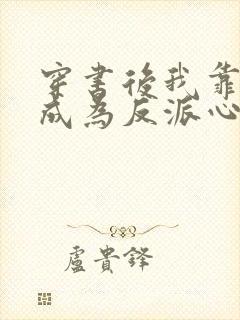 穿书後我靠
成為反派心
盧貴鋒